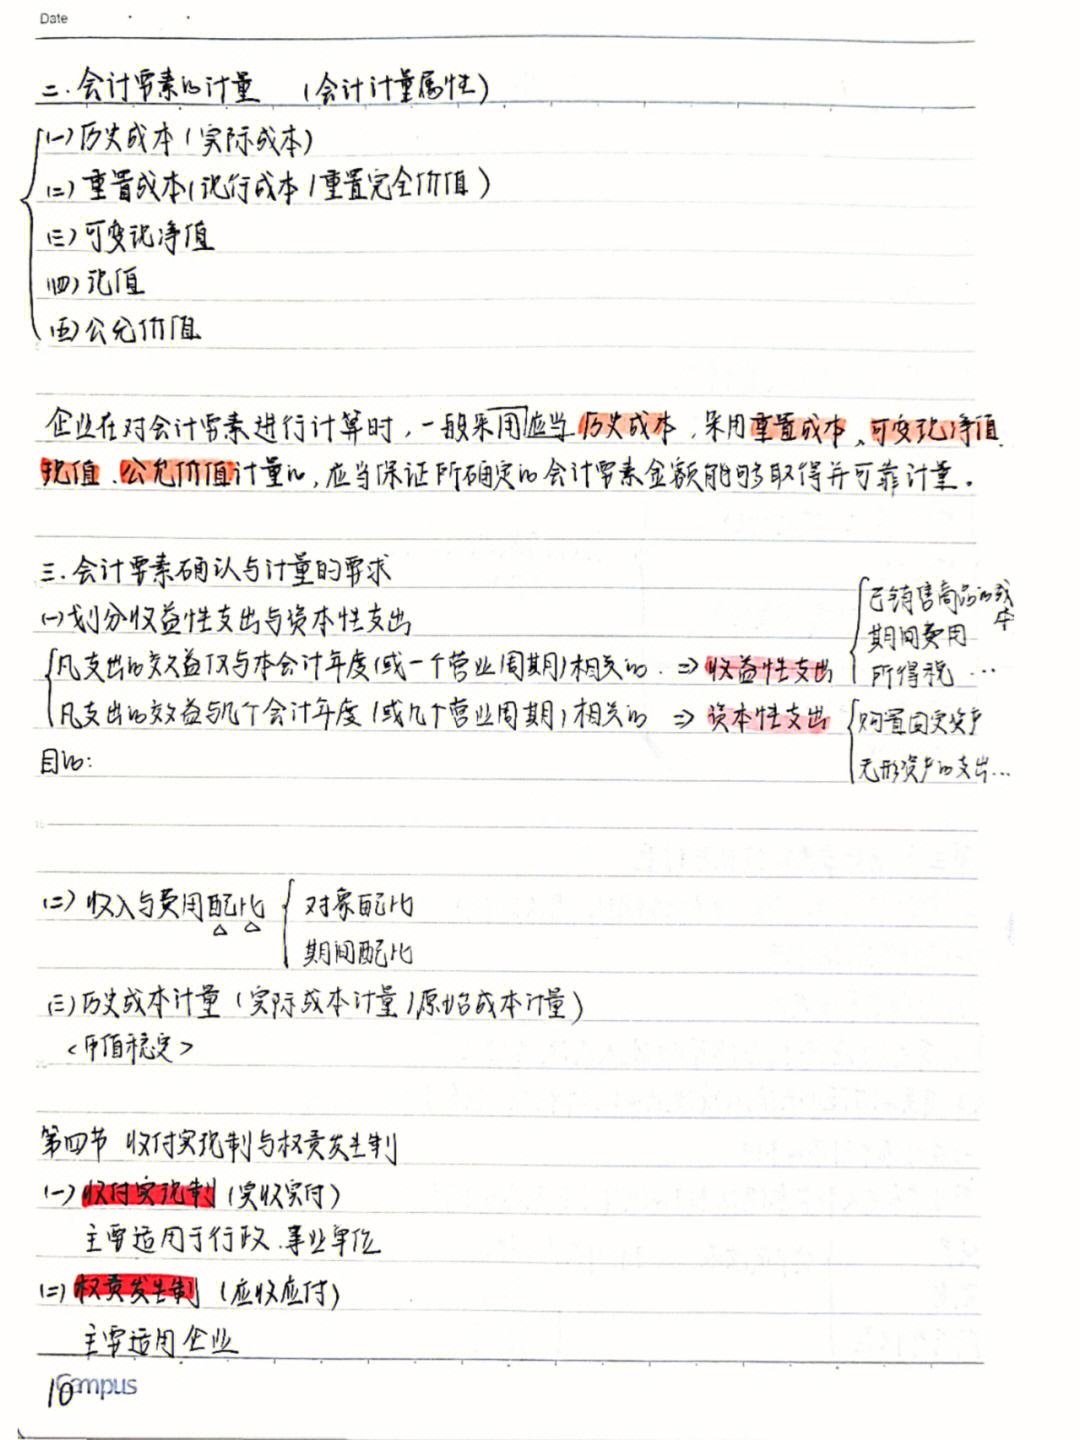 Date
二.会计要素的计量 (会计计量属性)
(一)历史成本(实际成本)
(二)重置成本(现行成本/重置完全价值)
(三)可变现净值
(四)现值
(五)公允价值
企业在对会计要素进行计算时,一般采用应当历史成本,采用重置成本、可变现净值
现值、公允价值计量的,应当保证所确定的会计要素金额能够取得并可靠计量。
三.会计要素确认与计量的要求
(一)划分收益性支出与资本性支出
凡支出的效益仅与本会计年度(或一个营业周期)相关的. ⇒收益性支出
已销售商品的成本
期间费用
所得税 …
凡支出的效益与几个会计年度(或几个营业周期)相关的 ⇒ 资本性支出
购置固定资产
无形资产的支出…
目的:
(二)收入与费用配比
对象配比
期间配比
(三)历史成本计量(实际成本计量/原始成本计量)
<币值稳定>
第四节 收付实现制与权责发生制
(一)收付实现制(实收实付)
主要适用于行政.事业单位
(二)权责发生制 (应收应付)
主要适用企业
10
Campus